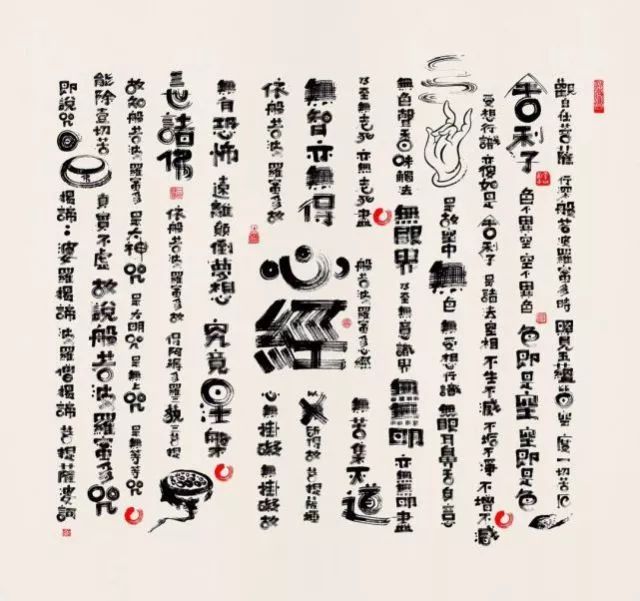 觀自在菩薩 行深般若波羅蜜多時 照見五蘊皆空 度一切苦厄
舍利子 色不異空 空不異色 色即是空 空即是色
受想行識 亦復如是 舍利子 是諸法空相 不生不滅 不垢不淨 不增不減
是故空中 無色 無受想行識 無眼耳鼻舌身意
無色聲香味觸法 無眼界 乃至無意識界 無無明 亦無無明盡
乃至無老死 亦無老死盡
無苦集灭道
無智亦無得
所得故 菩提薩埵
心經
般若波羅蜜多心經
依般若波羅蜜多故
心無掛礙 無掛礙故
無有恐怖 遠離顛倒夢想 究竟涅槃
三世諸佛 依般若波羅蜜多故 得阿耨多羅三藐三菩提
故知般若波羅蜜多 是大神咒 是大明咒 是無上咒 是無等等咒
能除壹切苦 真實不虛 故說般若波羅蜜多咒
即說咒曰 揭諦：婆羅揭諦 波羅僧揭諦 菩提薩婆訶